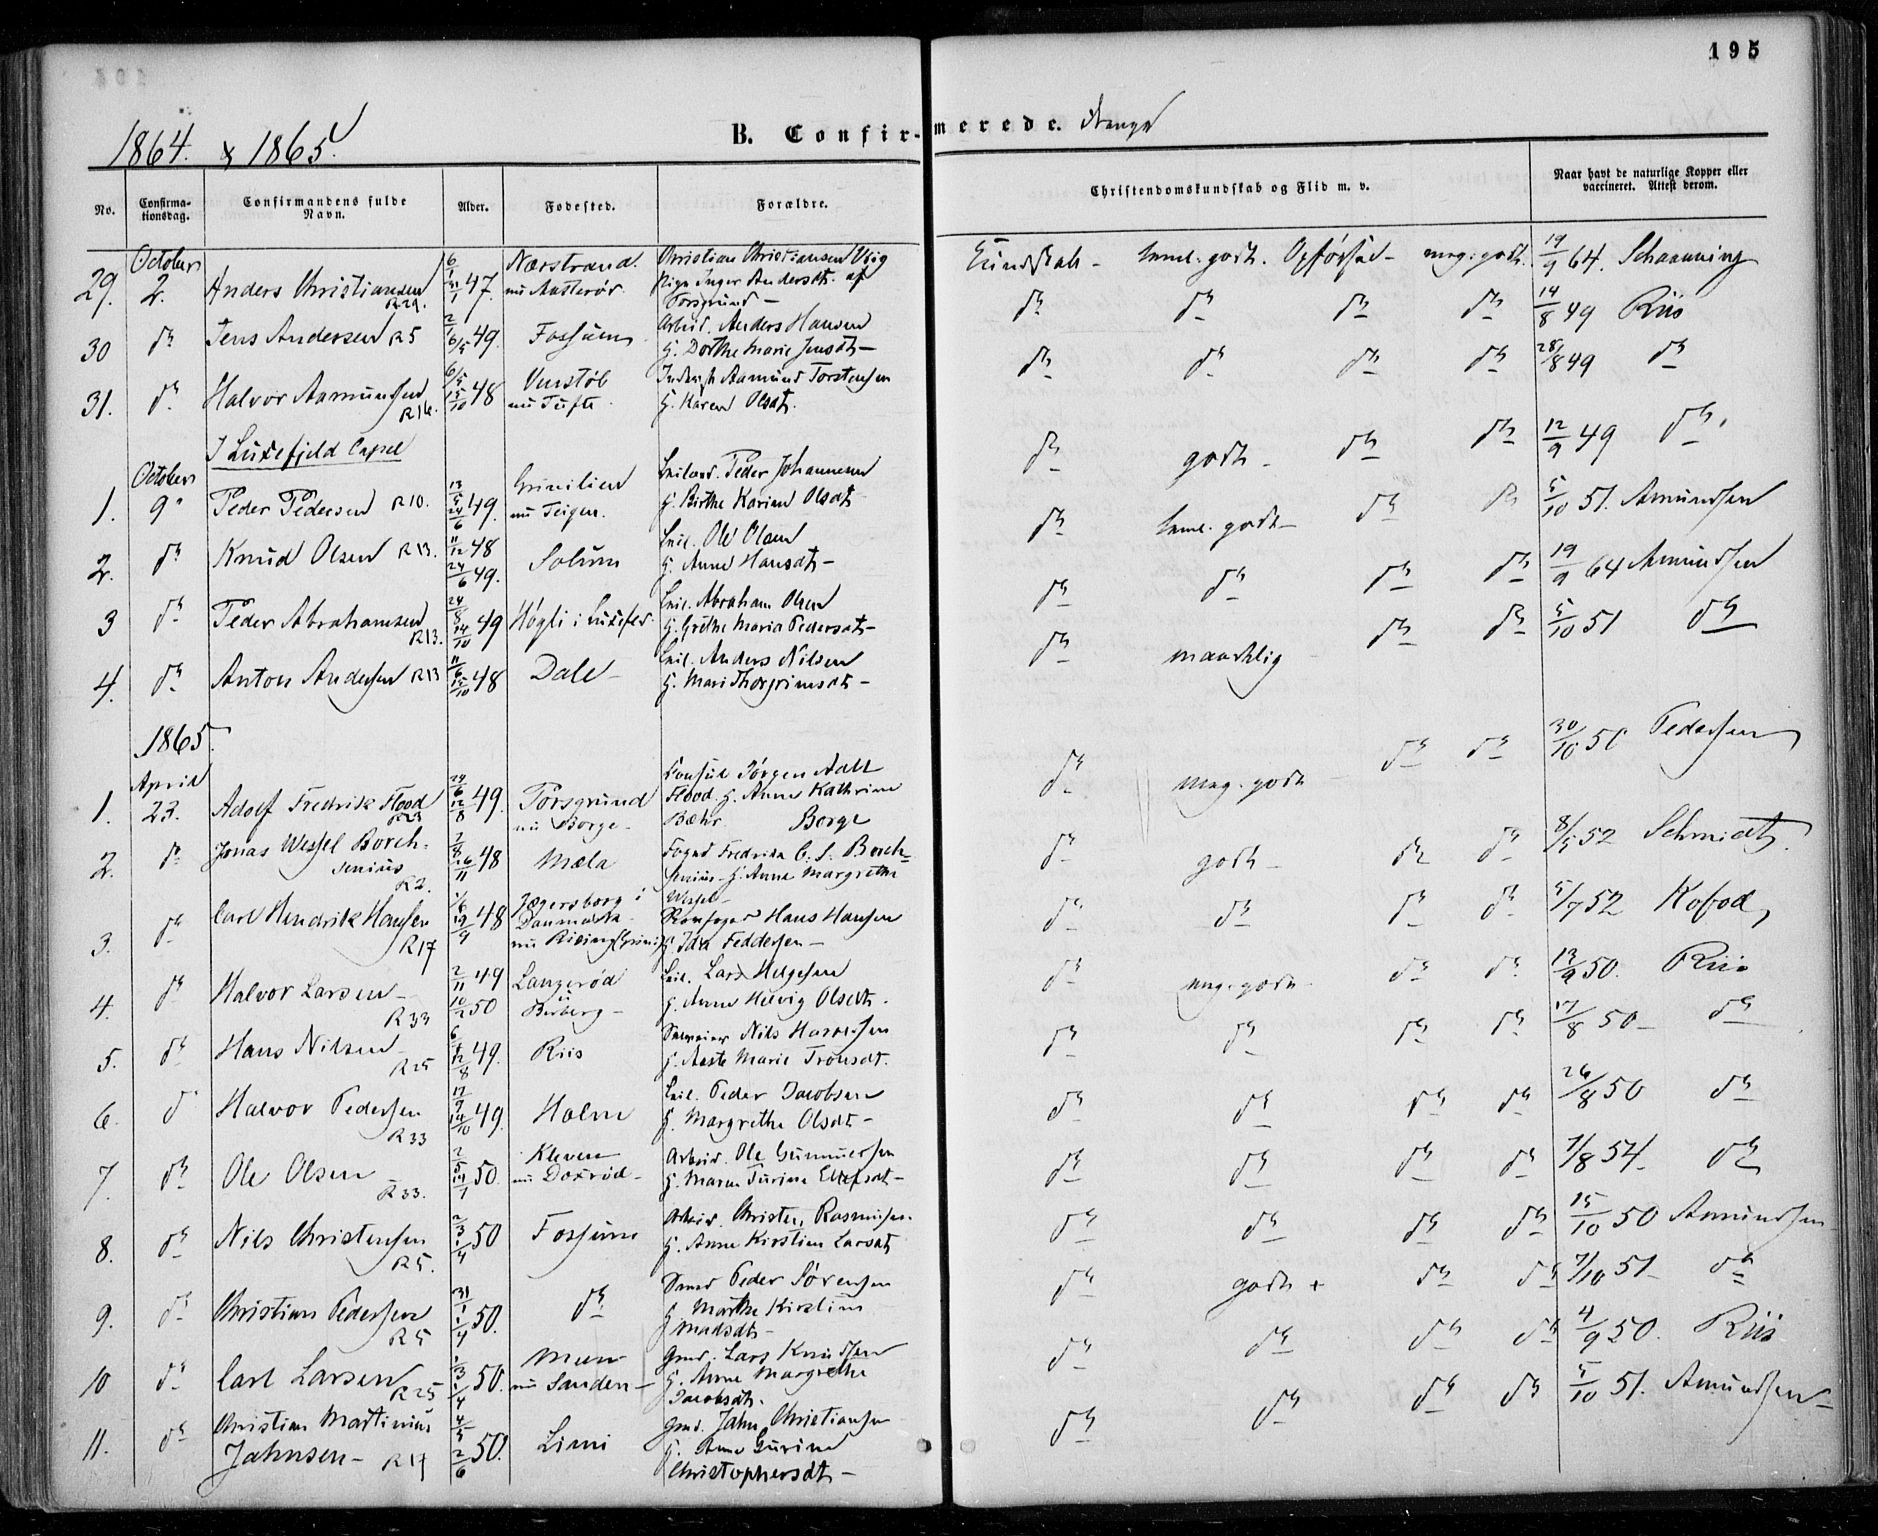 195
1864. & 1865.
B. Confirmerede. Drenge
No.
Confirmationsdag.
Confirmandens fulde Navn.
Alder.
Fødested.
Forældre.
Christendomskundskab og Flid m. v.
Naar havt de naturlige Kopper eller vaccineret. Attest derom.
29. October 2. Anders Christiansen R29. 47. Nærstrand. nu Christian Christiansen Pige Inger Andersdt. af Porsgrund – Kundskab – teml. godt. Opførsel – meg. godt. 19/9 64. Schanning
30 do Jens Andersen R5 49. Fossum Arbeid. Anders Hansen H. Dorthe Marie Jensdt – do do do do 14/8 49 Riis
31. do Halvor Aamundsen R16. 48 Venstøb nu Tufte Aamund Torstensen H. Karen Olsdt. do do do do 28/8 49 do
I Luxefjeld Capel
1. October 9 Peder Pedersen R10. 49. nu Teigen. Leilend. Peder Johannesen H. Birthe Karine Olsdt. do godt – do do 12/9 49 do
2. do Knud Olsen R13. 11/12 48 24/6 49. Solum Leil. Ole Olsen H. Anne Hansdt – do teml. godt – do do 5/10 51. Amundsen
3 do Peder Abrahamsen R13. 24/8 14/10 49 Høgli i Luxefjed. Leil. Abraham Olsen H. Grethe Maria Pedersdt – do do do do 19/9 64 Amundsen
4. do Anton Andersen R13 48 Dale – Leil. Anders Nilsen H. Mari Thorgrimsdt – do maadelig do do 5/10 51 do
1865.
1. April 23. Adolf Fredrik Flood R23 12/8 49. Porsgrund nu Borge – Consul Jørgen Aall Flood. H. Anne Kathrine Bæhr. Borge do meg. godt do do 30/10 50 Pedersen
2. do Jonas Wessel Borchsenius R2. 48 Mæla Foged Fredrik C. S. Borchsenius – H. Anne Margrethe Wessel – do godt – do do 8/5 52 Schmidt.
3. do Carl Hendrik Hansen R17 48 Jægersborg i Danmark nu Rising Hans Hansen H. Ida Feddersen – do do do do 5/7 52 Kofod
4. do Halvor Larsen – R33 2/11 49 10/2 50 Langerød Leil. Lars Helgesen H. Anne Helvig Olsdt. do meg. godt do do 13/9 50. Riis
5. do Hans Nilsen – R25 12/8 49. Riis Nils H. Aaste Marie Tronsdt. do do do do 17/8 50 – do
6. do Halvor Pedersen R33 17/9 14/10 49. Holm Leil. Peder Jacobsen H. Margrethe Olsdt – do do do do 26/8 50 do
7. do Ole Olsen R33. 50. Kleven nu Doxrød – Arbeid. Ole Gunnulfsen H. Maren Turine Ellefsdt – do do do do 7/8 54. do
8. do Nils Christensen R5. 2/3 1/4 50 Fossum Arbeid. Christen Rasmusen. H. Anne Kirstine Larsdt do do do do 15/10 50 Amundsen
9. do Christian Pedersen R5 31/1 1/4 50. do Smed Peder Sørensen H. Marthe Kirstine Madsdt – do godt + do do 7/10 51 – do
10 do Carl Larsen R25 1/3 1/4 50. Meen nu Sanden – Gmd. Lars Knudsen H. Anne Margrethe Jacobsdt. do do do do 4/9 50. Riis
11. do Christian Martinius Jahnsen – R17 4/5 2/6 50. Limi Gmd. Jahn Christiansen H. Anne Gurine Christophersdt – do do do do 5/10 51. Amundsen –